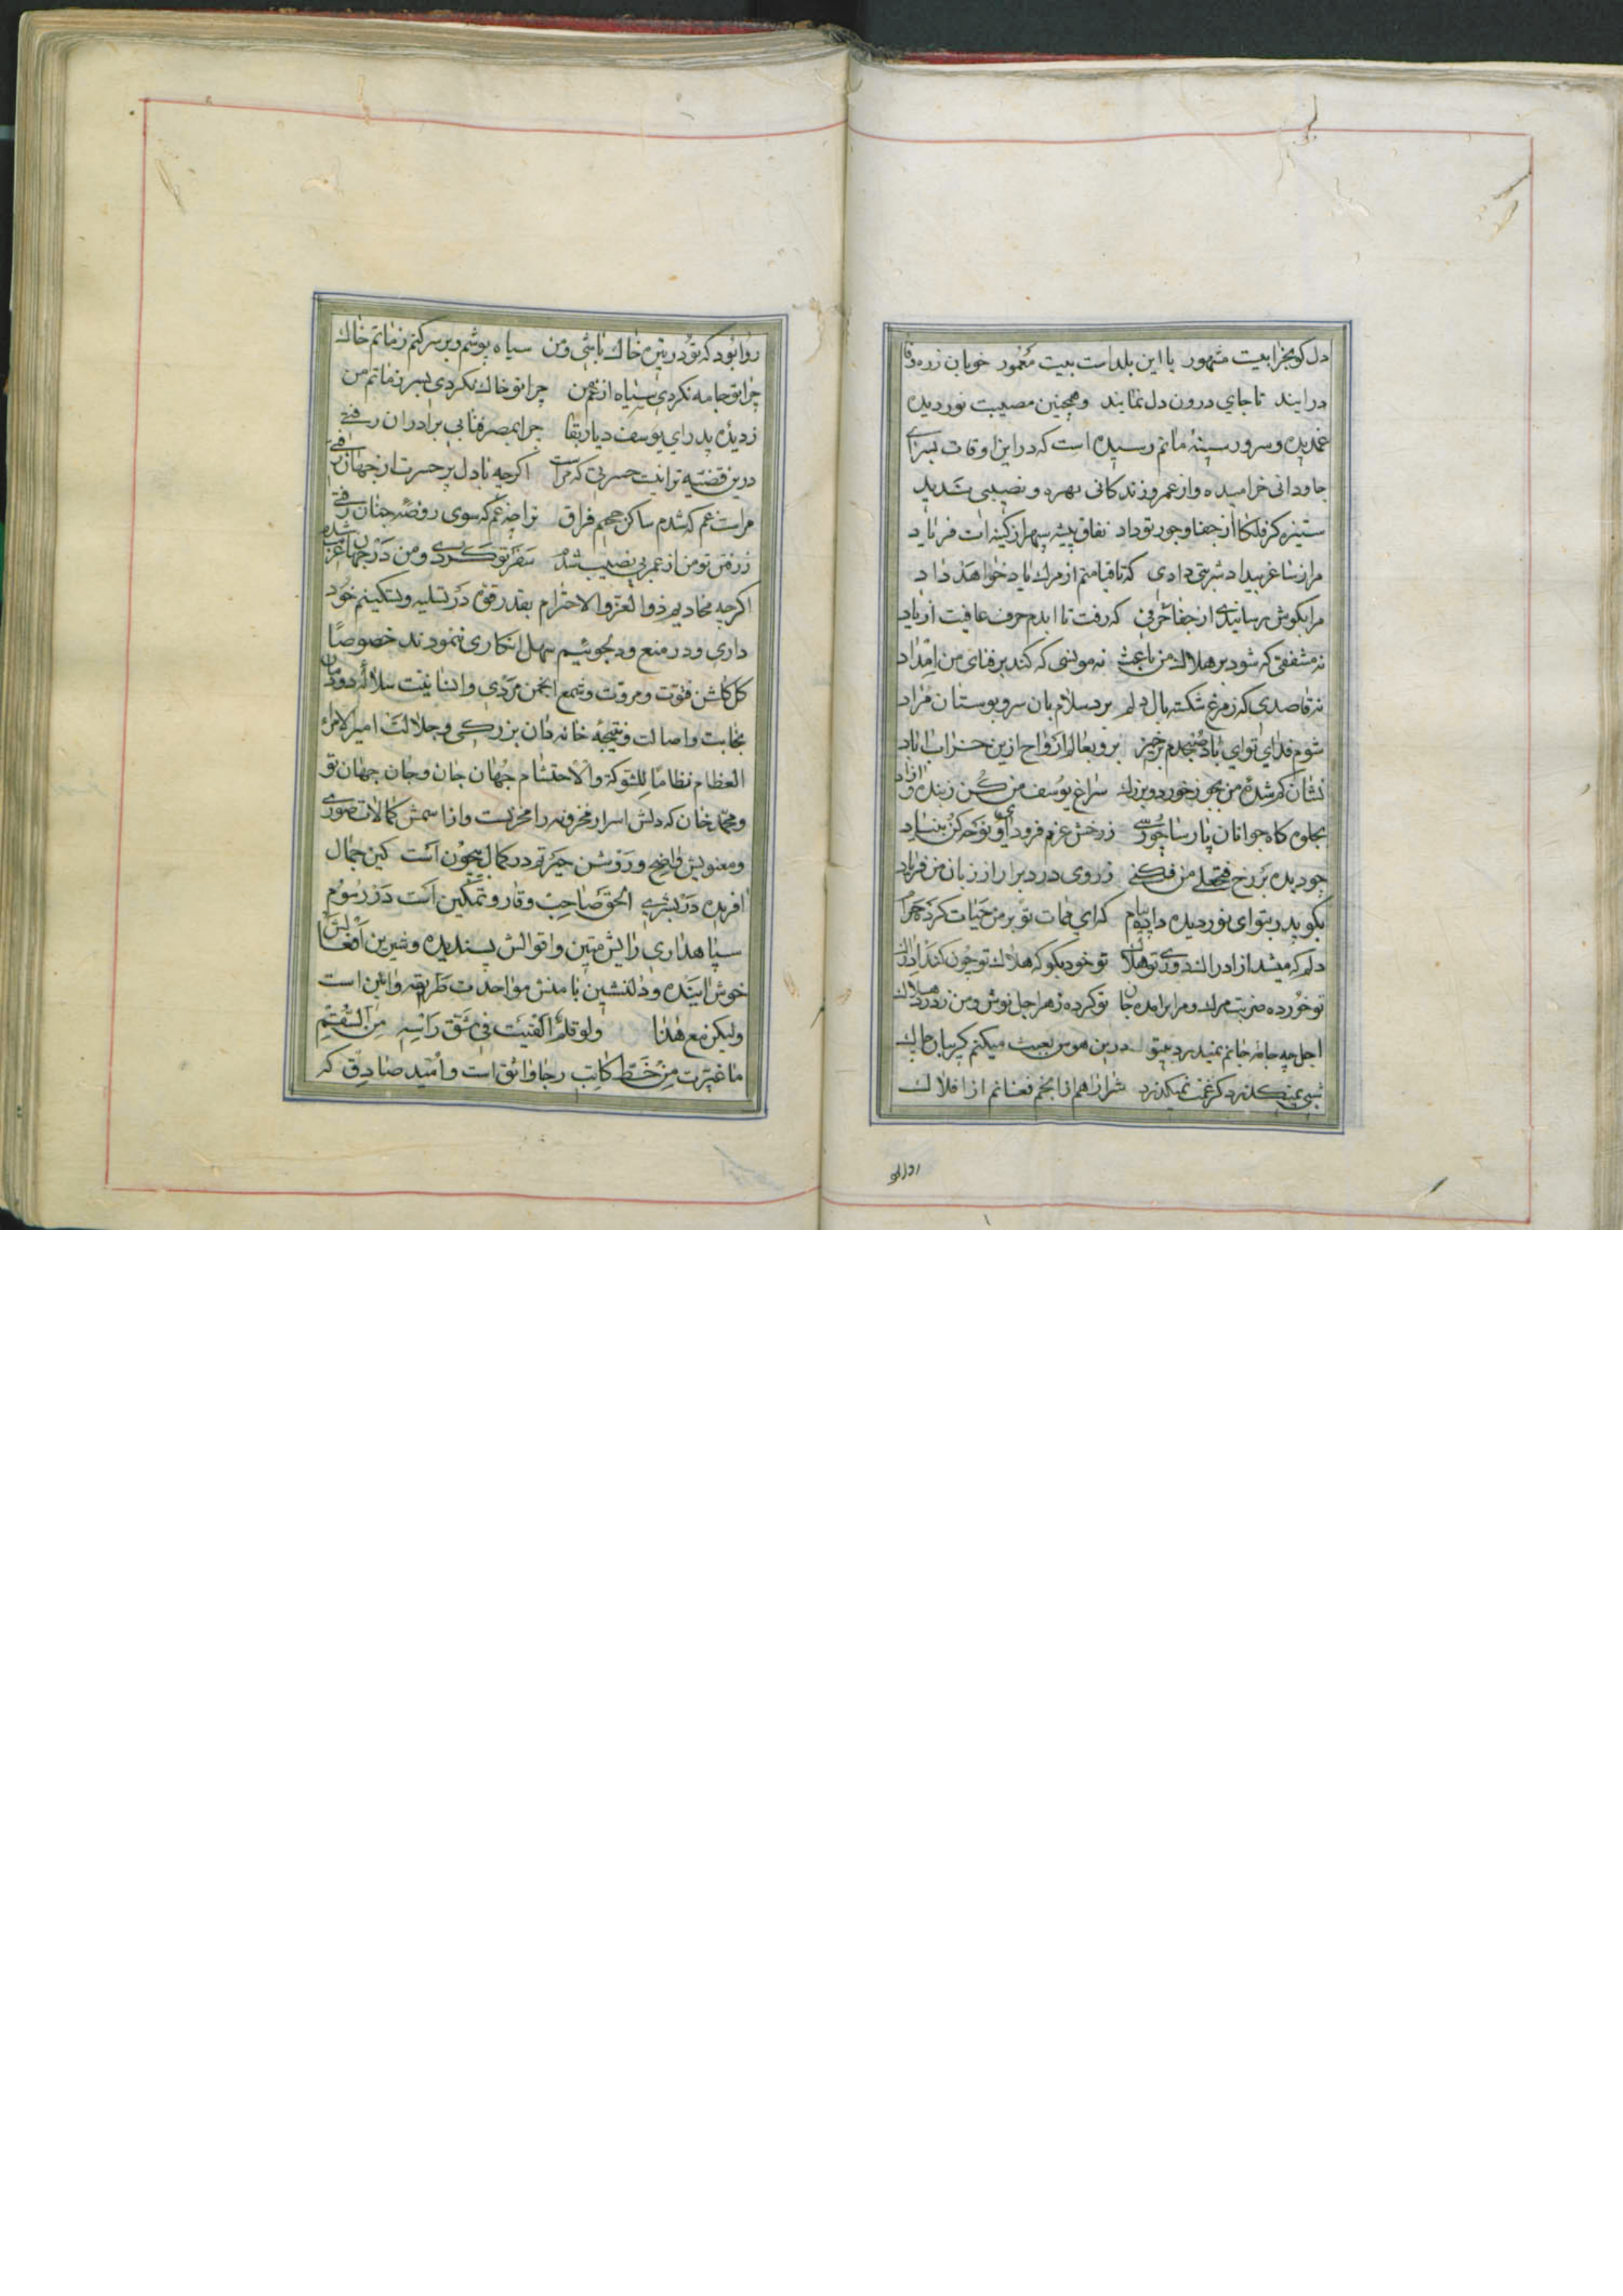 دل کو بخرابیت مشهور با این بلداست بیت معمور خوبان زره وفا
درایند تا جای درون دل نمایند و همچنین مصیبت نوردیده
غمدیده و سرور سینهٔ ماتم رسیده است که در این اوقات بسرای
جاودانی خرامیده و از عمر و زندکانی بهره و نصیبی شدید
ستیزه کر فلکا از جفا و جور تو داد نفاق پیشه سپهرا ز کینه ات فریاد
مرا ز ساغر بیداد شربتی دادی که تا قیامتم از مرک یاد خواهد داد
مرا بکوش رسانیدی از جفا حرفی که رفت تا ابدم حرف عافیت از یاد
نه مشفقی که شود بر هلاک من باعث نه مونسی که کند بر فنای من امداد
نه قاصدی که ز مرغ شکسته بال دلم برد سلام بان سرو بوستان مراد
شوم فدای تو ای باد صبحدم برخیز برو بعالم ارواح ازین خراب اباد
نشان کم شدهٔ من بجو ز خورد و بزرک سراغ یوسف من کن ز بنده و ازاد
بجلوه کاه جوانان پارسا چو رسی ز رخش عزم فرود آی و نوحه کن بنیاد
چو دیده بر رخ من فکنی ز روی درد برار از زبان من فریاد
بکو پدر بتو ای نوردیده داد پیام که ای ممات تو بر من حیات کرده حرام
دلم که میشد از ادراک دوری تو هلاک تو خود بکو که هلاک تو چون کند ادراک
تو خورده ضربت مرک و مرا برامده جان تو کرده زهر اجل نوش و من ز درد هلاک
اجل چه جامهٔ جانم نمیدرد بیتو درین هوس بعبث میکنم کریبان چاک
شبی نمیکذرد کز غمت نمیکذرد شرار اهم از انجم فغانم از افلاک
روا بود
روا بود که تو در زیر خاک باشی و من سیاه پوشم و بر سر کنم ز ماتم خاک
چرا تو جامه نکردی سیاه از غم من چرا تو خاک نکردی بسر ز ماتم من
ز دیدهٔ پدر ای یوسف دیار بقا چرا بمصر فنا بی برادران رفتی
درین قضیه ترا نیست حسرتی که مراست اکرچه با دل پر حسرت از جهان رفتی
مراست غم که شدم ساکن جحیم فراق ترا چه غم که سوی روضهٔ جنان رفتی
ز رفتن تو من از عمر بی نصیب شدم سفر تو کردی و من در جهان غریب شدم
اکرچه مخادیم ذوالعز والاحترام بقدر قوه در تسلیه و تسکینم خود
داری و در منع و دلجوئیم سهل انکاری ننمودند خصوصا
کل کلشن فتوت و مروت و شمع انجمن مردی و انسانیت سلالهٔ دودمان
نجابت و اصالت و نتیجهٔ خانه دان بزرکی و جلالت امیرالامراء
العظام نظاما للشوکة والاحتشام جهان جان و جان جهان تو
و محمد خان که دلش اسرار مخزونه را مخزنیست و از اسمش کمالات صوری
و معنویش واضح و روشن حیرتم در کمال بیچون است کین جمال
افریده در بشری الحق صاحب وقار و تمکین است در رسوم
سپاهداری رایش متین و اقوالش پسندیده و شیرین افعالش
خوش اینده و دلنشین با منش مؤاحدت طریقه و ائین است
ولیکن مع هذا ولو قلم القیت فی شق راسه من السقم
ما غیرت من خط کاتب رجا واثق است و امید صادق که